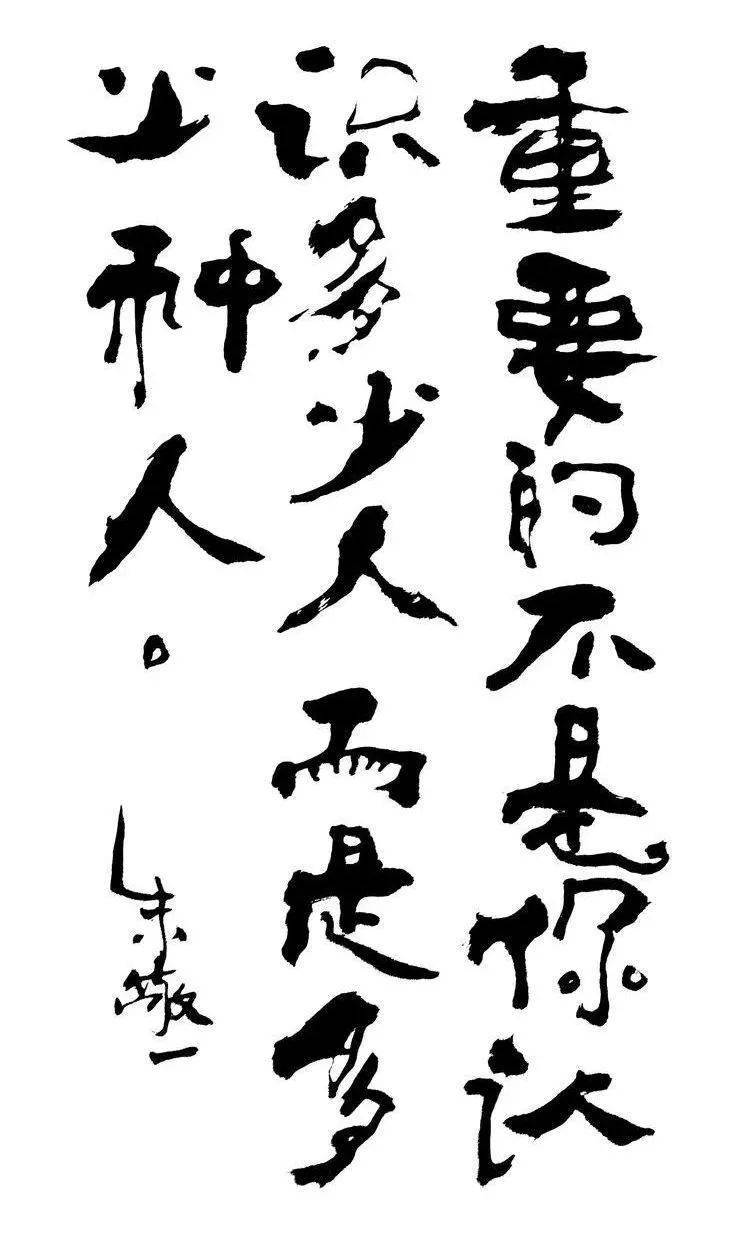 重要的不是你认
识多少人而是多
少种人。
朱敬一